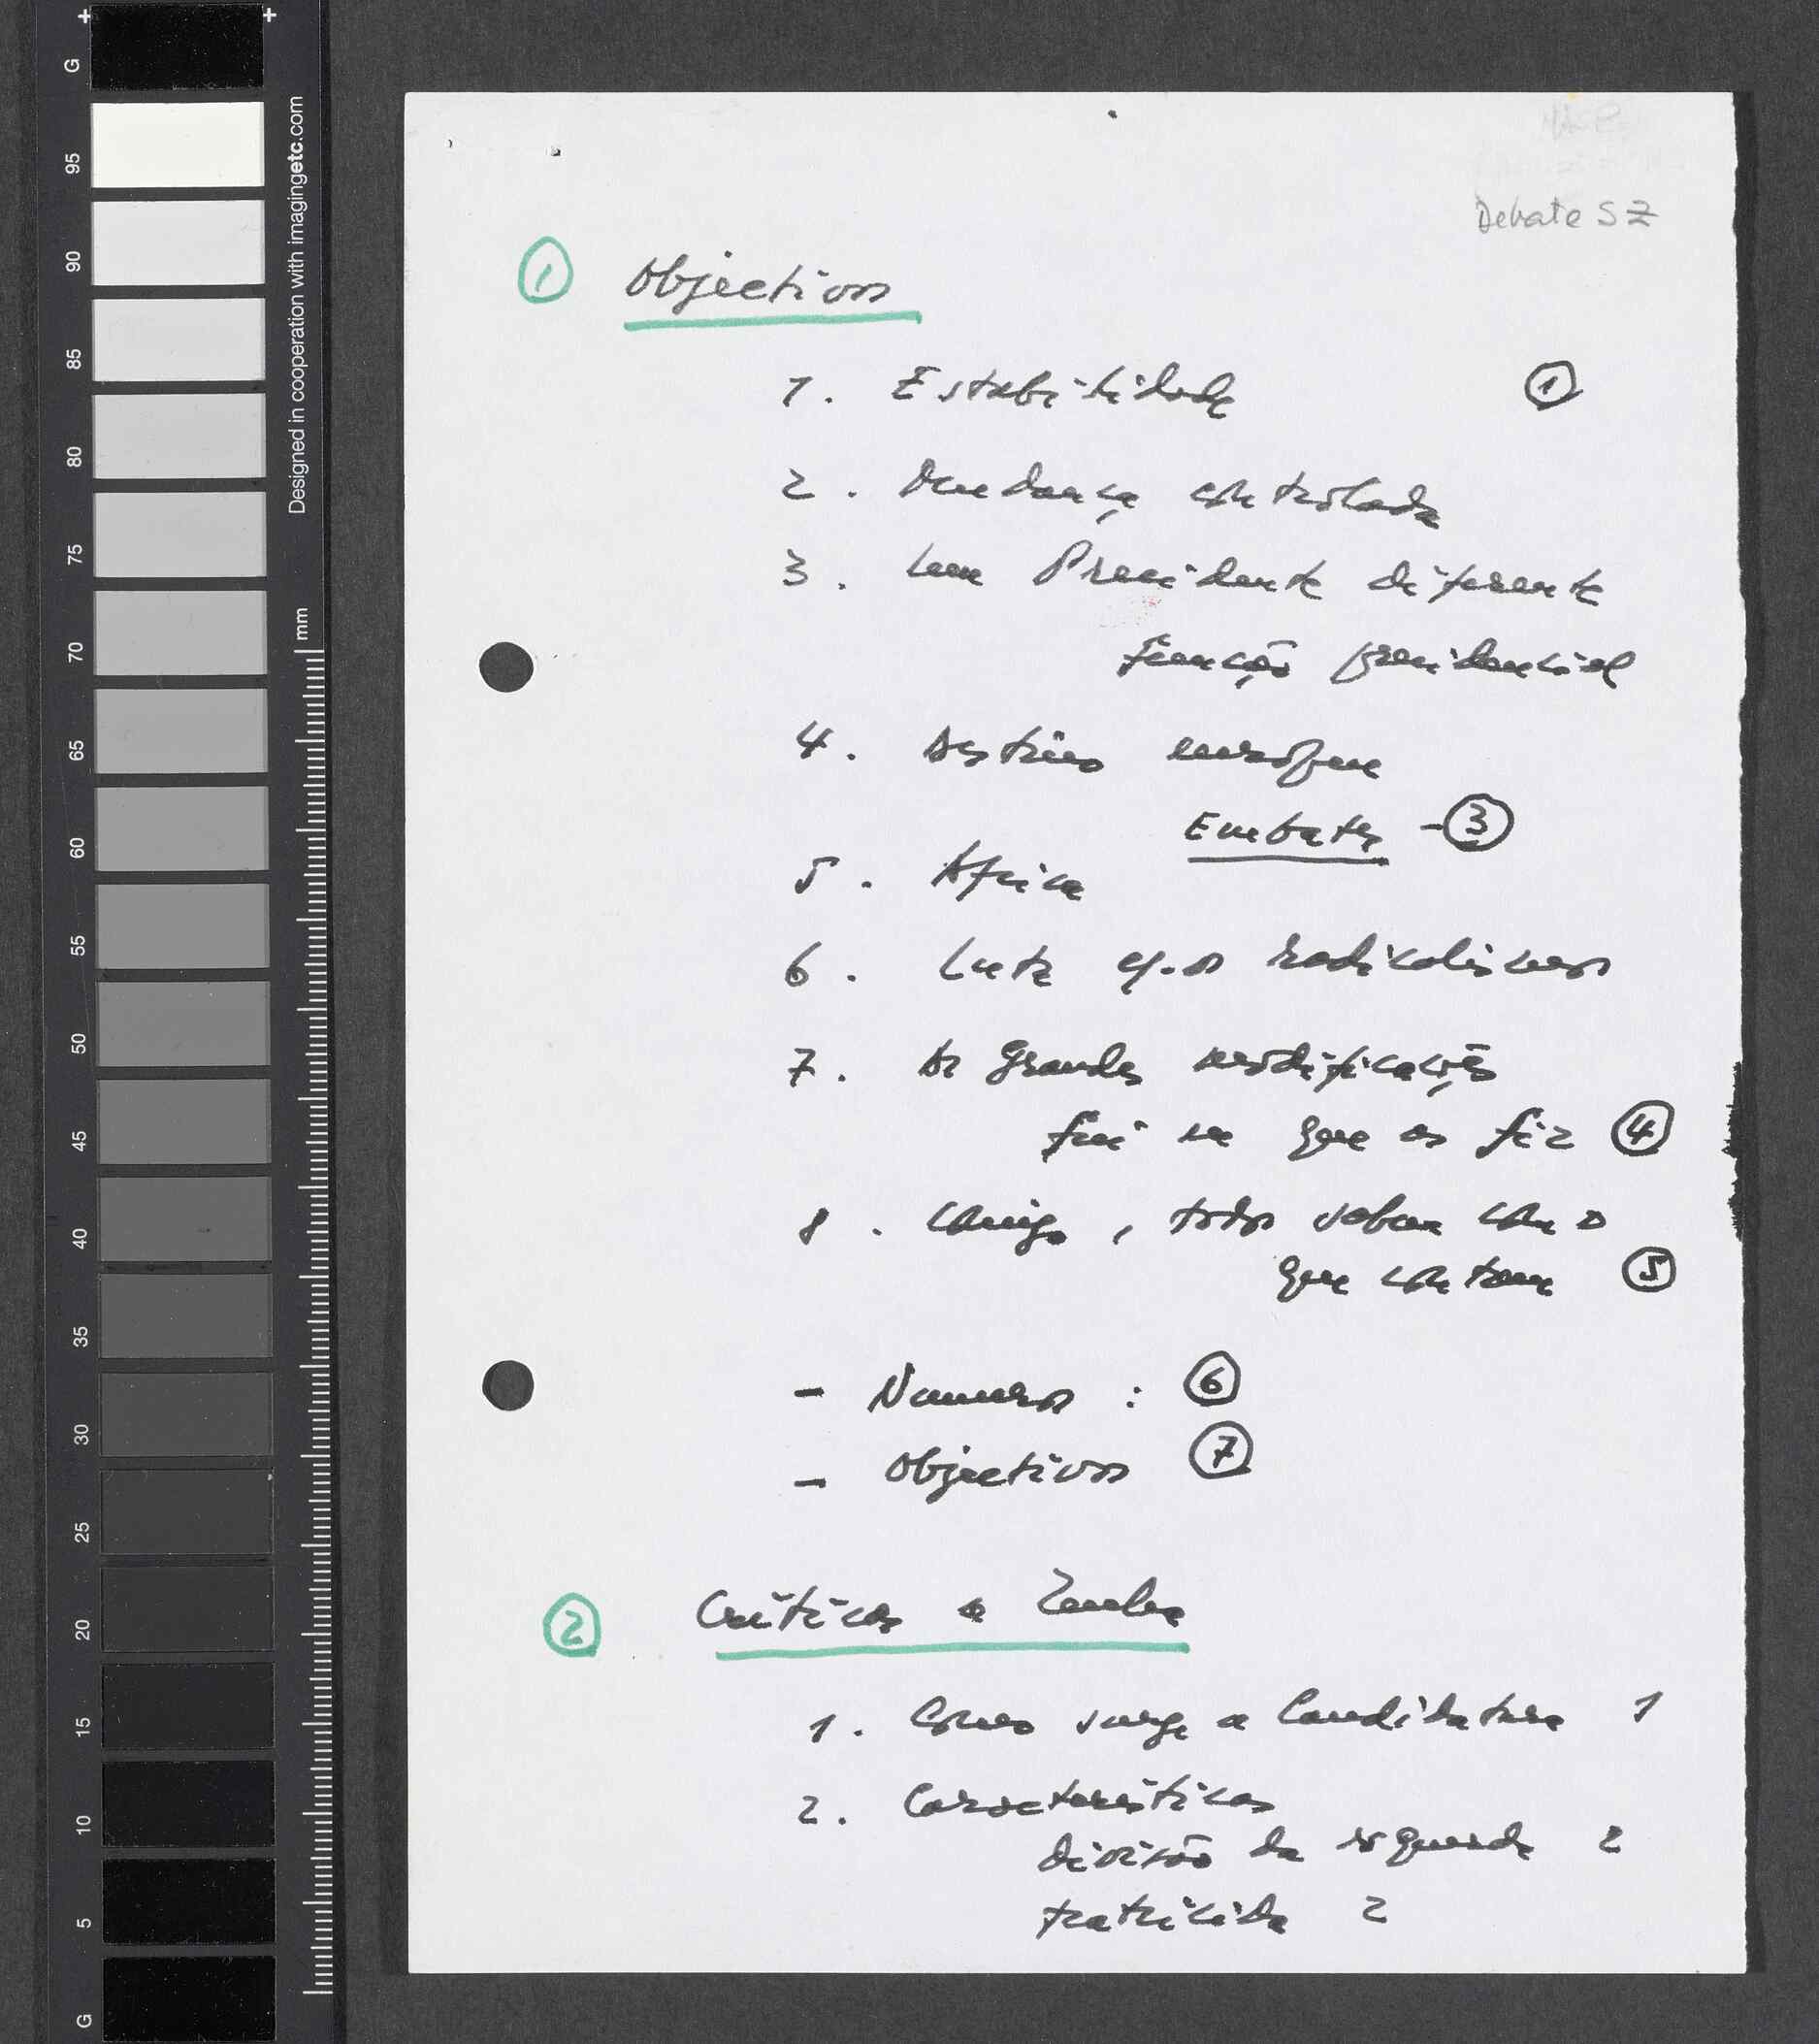 Debate SZ
① Objectivos
1. Estabilidade ①
2. Mudança controlada
3. Um Presidente diferente
função presidencial
4. Destino europeu
Embates - ③
5. Africa
6. Luta c/. os radicalismos
7. As Grandes modificações
fui eu que as fiz ④
8. Comigo, todos sabem com o
que contam ⑤
- Numeros : ⑥
- Objectivos ⑦
② Críticas a Zenha
1. Como surge a Candidatura 1
2. Características
divisão da esquerda 2
fratricida 2
Designed in cooperation with imagingetc.com
mm
G
95
90
85
80
75
70
65
60
55
50
45
40
35
30
25
20
15
10
5
G